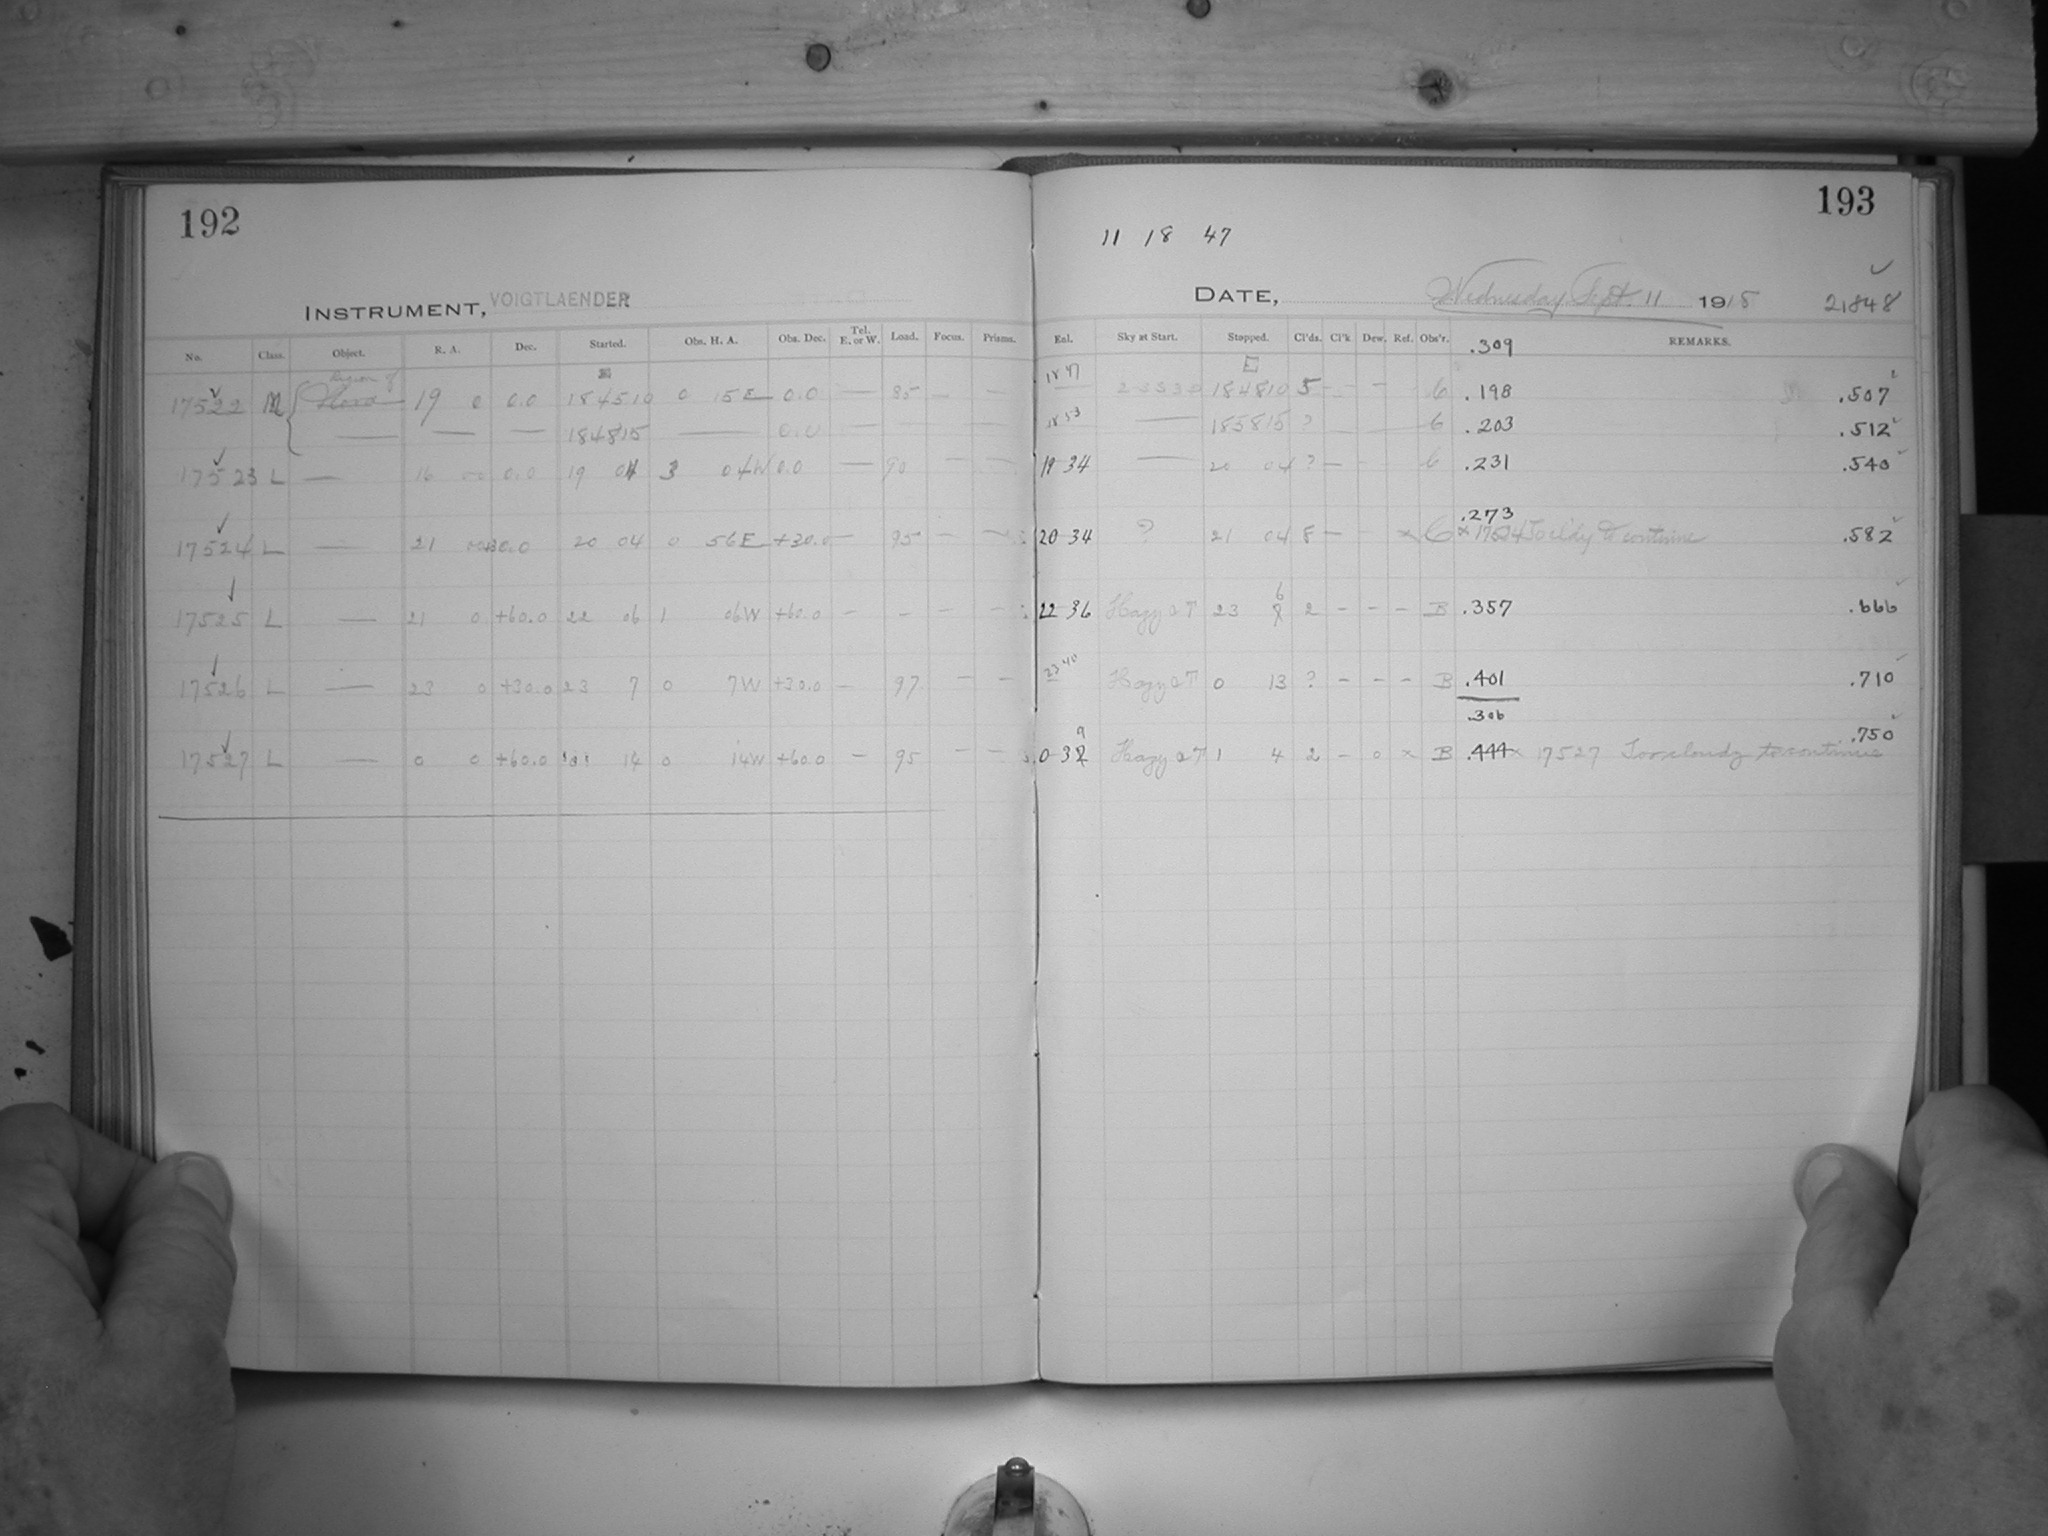 192
INSTRUMENT, VOIGTLAENDER
No. Class. Object. R. A. Dec. Started. Obs. H. A. Obs. Dec. Tel. E. or W. Load. Focus. Prisms.
Region of
17522 M 19 0 0.0 184510 0 15E 0.0 — 85 — —
— — — 184815 — 0.0 — — — —
17523 L — 16 00 0.0 19 04 3 04W 0.0 — 90 — —
17524 L — 21 00 +30.0 20 04 0 56E +30.0 — 95 — —
17525 L — 21 0 +60.0 22 06 1 06W +60.0 — - — —
17526 L — 23 0 +30.0 23 7 0 7W +30.0 — 97 — —
17527 L — 0 0 +60.0 14 0 14W +60.0 — 95 — —
193
11 18 47
DATE, Wednesday Sept. 11 1918
21848
Enl. Sky at Start. Stopped. Cl'ds. Cl'k Dew. Ref. Obs'r. REMARKS.
.309
E
18 47 184810 5 - - - 6 .198 .507
18 53 — 185815 ? 6 .203 .512
19 34 — 20 04 ? — - 6 .231 .540
.273
20 34 ? 21 04 8 — - × 6 × 17524 Too cldy to continue .582
22 36 Hazy & T 23 6 2 - - - B .357 .666
23 40 Hazy & T 0 13 ? - - - B .401 .710
.306
9 .750
0 32 Hazy & T 1 4 2 - 0 × B .444 × 17527 Too cloudy to continue